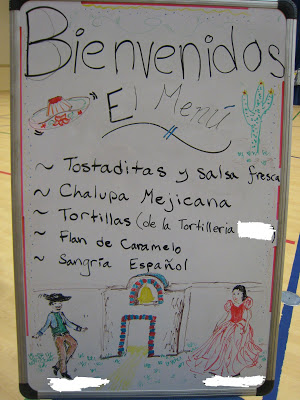 Bienvenidos
El Menú
~ Tostaditas y salsa fresca
~ Chalupa Mejicana
~ Tortillas (de la Tortilleria )
~ Flan de Caramelo
~ Sangría Español